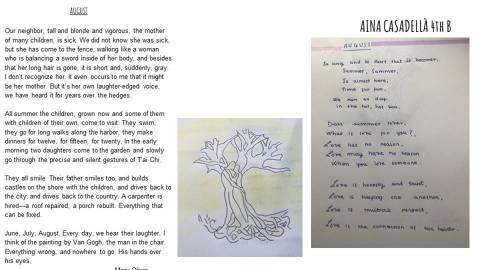 AUGUST
Our neighbor, tall and blonde and vigorous, the mother
of many children, is sick. We did not know she was sick,
but she has come to the fence, walking like a woman
who is balancing a sword inside of her body, and besides
that her long hair is gone, it is short and, suddenly, gray.
I don't recognize her. It even occurs to me that it might
be her mother. But it's her own laughter-edged voice,
we have heard it for years over the hedges.
All summer the children, grown now and some of them
with children of their own, come to visit. They swim,
they go for long walks along the harbor, they make
dinners for twelve, for fifteen, for twenty. In the early
morning two daughters come to the garden and slowly
go through the precise and silent gestures of T'ai Chi.
They all smile. Their father smiles too, and builds
castles on the shore with the children, and drives back to
the city, and drives back to the country. A carpenter is
hired—a roof repaired, a porch rebuilt. Everything that
can be fixed.
June, July, August. Every day, we hear their laughter. I
think of the painting by Van Gogh, the man in the chair.
Everything wrong, and nowhere to go. His hands over
his eyes.
Mary Oliver
AINA CASADELLÀ 4TH B
AUGUST
So long and so short that it becomes,
Summer, Summer,
Is almost here,
Time for fun,
in the hot, hot sun.
Dear summer lover,
What is love for you?,
Love has no reason,
Love may have no reason
When you love someone.
Love is honesty and trust,
Love is helping one another,
Love is mutual respect,
Love is the connection of two